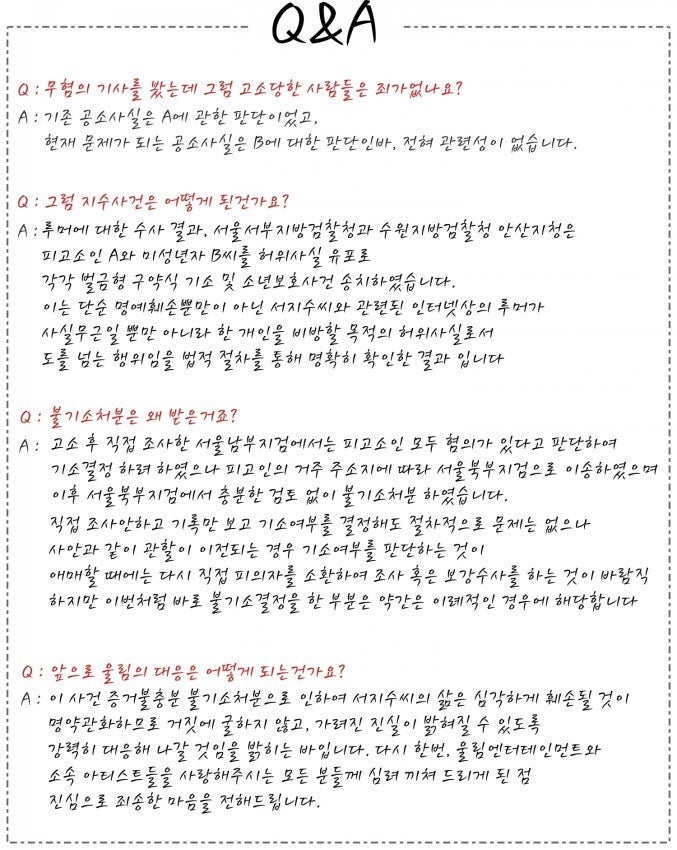 Q&A
Q : 무혐의 기사를 봤는데 그럼 고소당한 사람들은 죄가없나요?
A : 기존 공소사실은 A에 관한 판단이었고,
현재 문제가 되는 공소사실은 B에 대한 판단인바, 전혀 관련성이 없습니다.
Q : 그럼 지수사건은 어떻게 된건가요?
A : 루머에 대한 수사 결과, 서울서부지방검찰청과 수원지방검찰청 안산지청은
피고소인 A와 미성년자 B씨를 허위사실 유포로
각각 벌금형 구약식 기소 및 소년보호사건 송치하였습니다.
이는 단순 명예훼손뿐만이 아닌 서지수씨와 관련된 인터넷상의 루머가
사실무근일 뿐만 아니라 한 개인을 비방할 목적의 허위사실로서
도를 넘는 행위임을 법적 절차를 통해 명확히 확인한 결과 입니다
Q : 불기소처분은 왜 받은거죠?
A : 고소 후 직접 조사한 서울남부지검에서는 피고소인 모두 혐의가 있다고 판단하여
기소결정 하려 하였으나 피고인의 거주 주소지에 따라 서울북부지검으로 이송하였으며
이후 서울북부지검에서 충분한 검토 없이 불기소처분 하였습니다.
직접 조사안하고 기록만 보고 기소여부를 결정해도 절차적으로 문제는 없으나
사안과 같이 관할이 이전되는 경우 기소여부를 판단하는 것이
애매할 때에는 다시 직접 피의자를 소환하여 조사 혹은 보강수사를 하는 것이 바람직
하지만 이번처럼 바로 불기소결정을 한 부분은 약간은 이례적인 경우에 해당합니다
Q : 앞으로 울림의 대응은 어떻게 되는건가요?
A : 이 사건 증거불충분 불기소처분으로 인하여 서지수씨의 삶은 심각하게 훼손될 것이
명약관화하므로 거짓에 굴하지 않고, 가려진 진실이 밝혀질 수 있도록
강력히 대응해 나갈 것임을 밝히는 바입니다. 다시 한번, 울림엔터테인먼트와
소속 아티스트들을 사랑해주시는 모든 분들께 심려 끼쳐 드리게 된 점
진심으로 죄송한 마음을 전해드립니다.